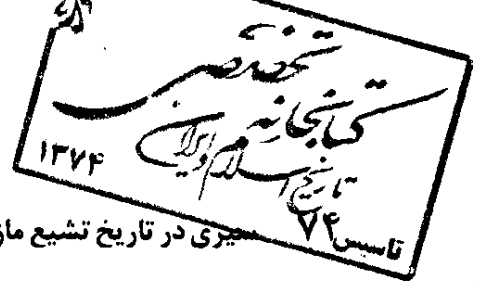 کتابخانه تخصصی
تاریخ اسلام و ایران
۱۳۷۴
تاسیس ۷۴
سیری در تاریخ تشیع ماز